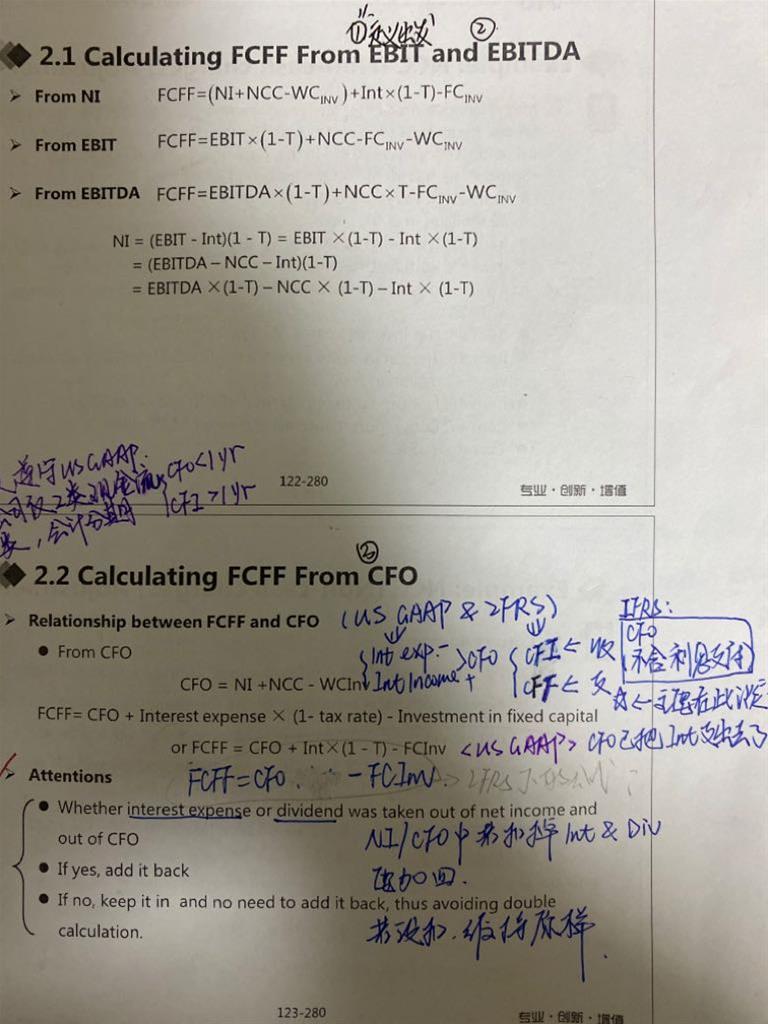 ① 定义出发 ②
2.1 Calculating FCFF From EBIT and EBITDA
➢ From NI FCFF=(NI+NCC-WC_INV)+Int×(1-T)-FC_INV
➢ From EBIT FCFF=EBIT×(1-T)+NCC-FC_INV-WC_INV
➢ From EBITDA FCFF=EBITDA×(1-T)+NCC×T-FC_INV-WC_INV
NI = (EBIT - Int)(1 - T) = EBIT ×(1-T) - Int ×(1-T)
= (EBITDA – NCC – Int)(1-T)
= EBITDA ×(1-T) – NCC × (1-T) – Int × (1-T)
遵守US GAAP.
CFO<1yr
会计分期 CFI>1yr
122-280 专业·创新·增值
③
2.2 Calculating FCFF From CFO
➢ Relationship between FCFF and CFO (US GAAP & IFRS) IFRS:
● From CFO Int exp.- Int Income + CFO CFI ← 收 CFO
CFF ← 支 不含利息支付
CFO = NI +NCC - WCInv
FCFF= CFO + Interest expense × (1- tax rate) - Investment in fixed capital
or FCFF = CFO + Int×(1 - T) - FCInv <US GAAP> CFO已把Int支出去了
➢ Attentions FCFF=CFO -FCInv
● Whether interest expense or dividend was taken out of net income and
out of CFO NI/CFO中若扣掉Int & Div
● If yes, add it back 加回.
● If no, keep it in and no need to add it back, thus avoiding double
calculation. 若没扣.维持原样.
123-280 专业·创新·增值